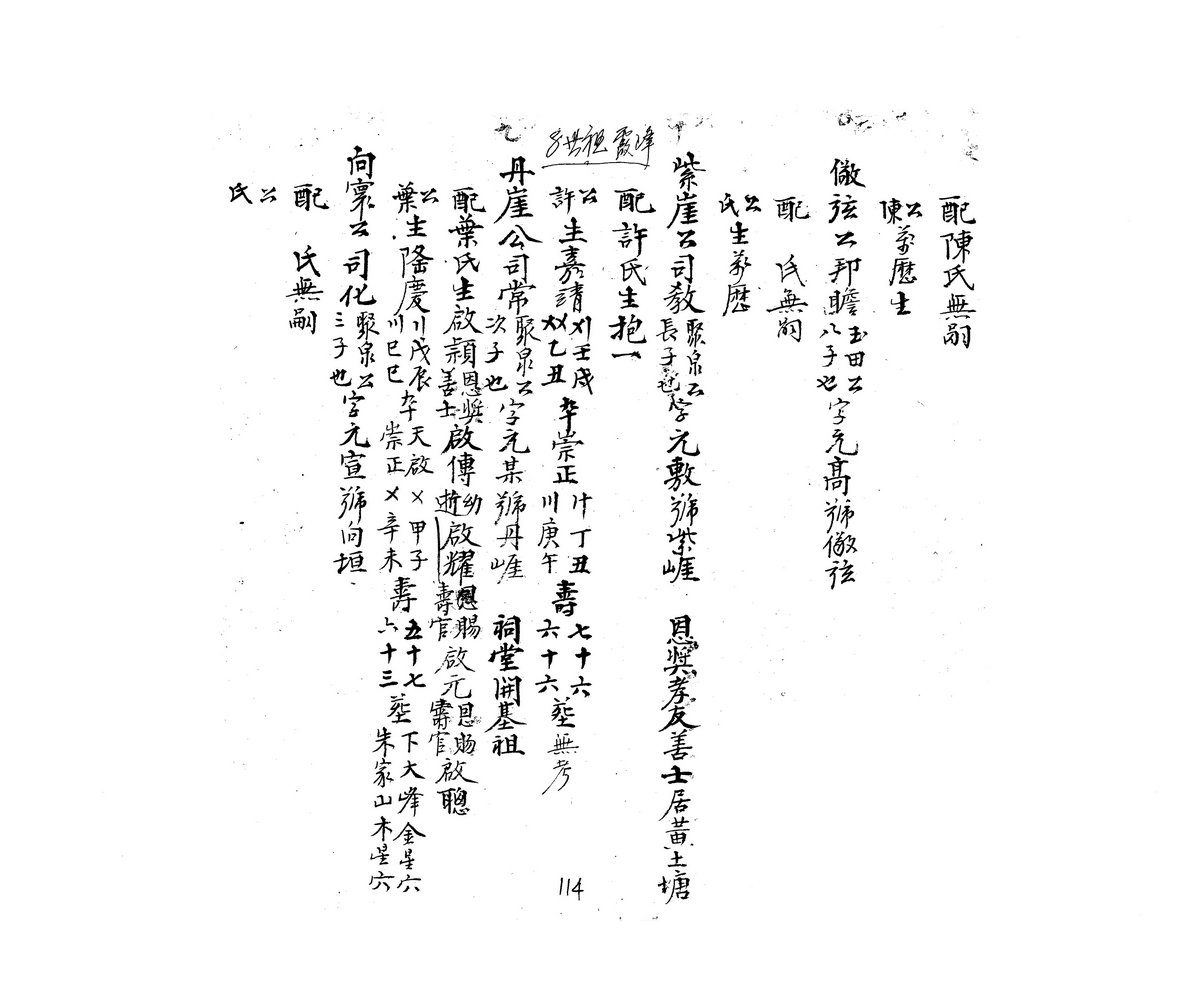 配陳氏無嗣
公陳萬歷生
儆弦公邦瞻玉田公八子也字元高號儆弦
配　氏無嗣
公氏生萬歷
紫崖公司教聚泉公長子也字元敷號紫崕　恩奬孝友善士居黃土塘
配許氏生抱一
祖霞峰
公許生嘉靖〤〢壬戌〤〤乙丑卒崇正〡〇丁丑〣庚午壽七十六六十六塟無考
丹崖公司常聚泉公次子也字元某號丹崕　祠堂開基祖
配葉氏生啟穎恩奬善士啟傳幼逝啟耀恩賜壽官啟元恩賜壽官啟聰
公葉生隆慶〢戊辰〣己巳卒天啟〤甲子崇正〤辛未壽五十七六十三塟下大峰金星穴朱家山木星穴
向寰公司化聚泉公三子也字元宣號向垣
配　氏無嗣
公氏
114